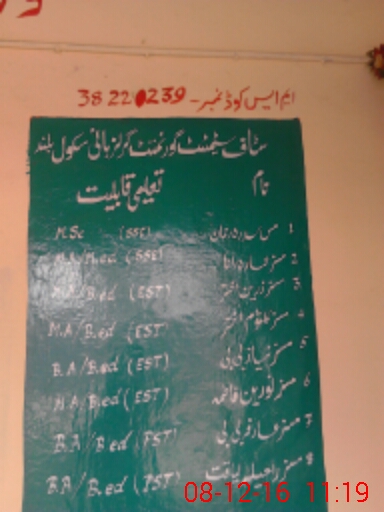 ایم ایس کوڈ نمبر - 38220239
سٹاف سٹیٹمنٹ گورنمنٹ گرلز ہائی سکول بلند
نام تعلیمی قابلیت
1 مس سدرہ خان M.Sc (SSE)
2 مسز سارہ M.A/M.ed (SSE)
3 مسز زرین اختر M.A/B.ed (EST)
4 مسز کلثوم اختر M.A/B.ed (EST)
5 مسز شہناز بی بی B.A/B.ed (EST)
6 مسز نورین فاطمہ M.A/B.ed (EST)
7 مسز عارفہ بی بی B.A/B.ed (PST)
8 مسز راحیلہ B.A/B.ed (PST)
08-12-16 11:19